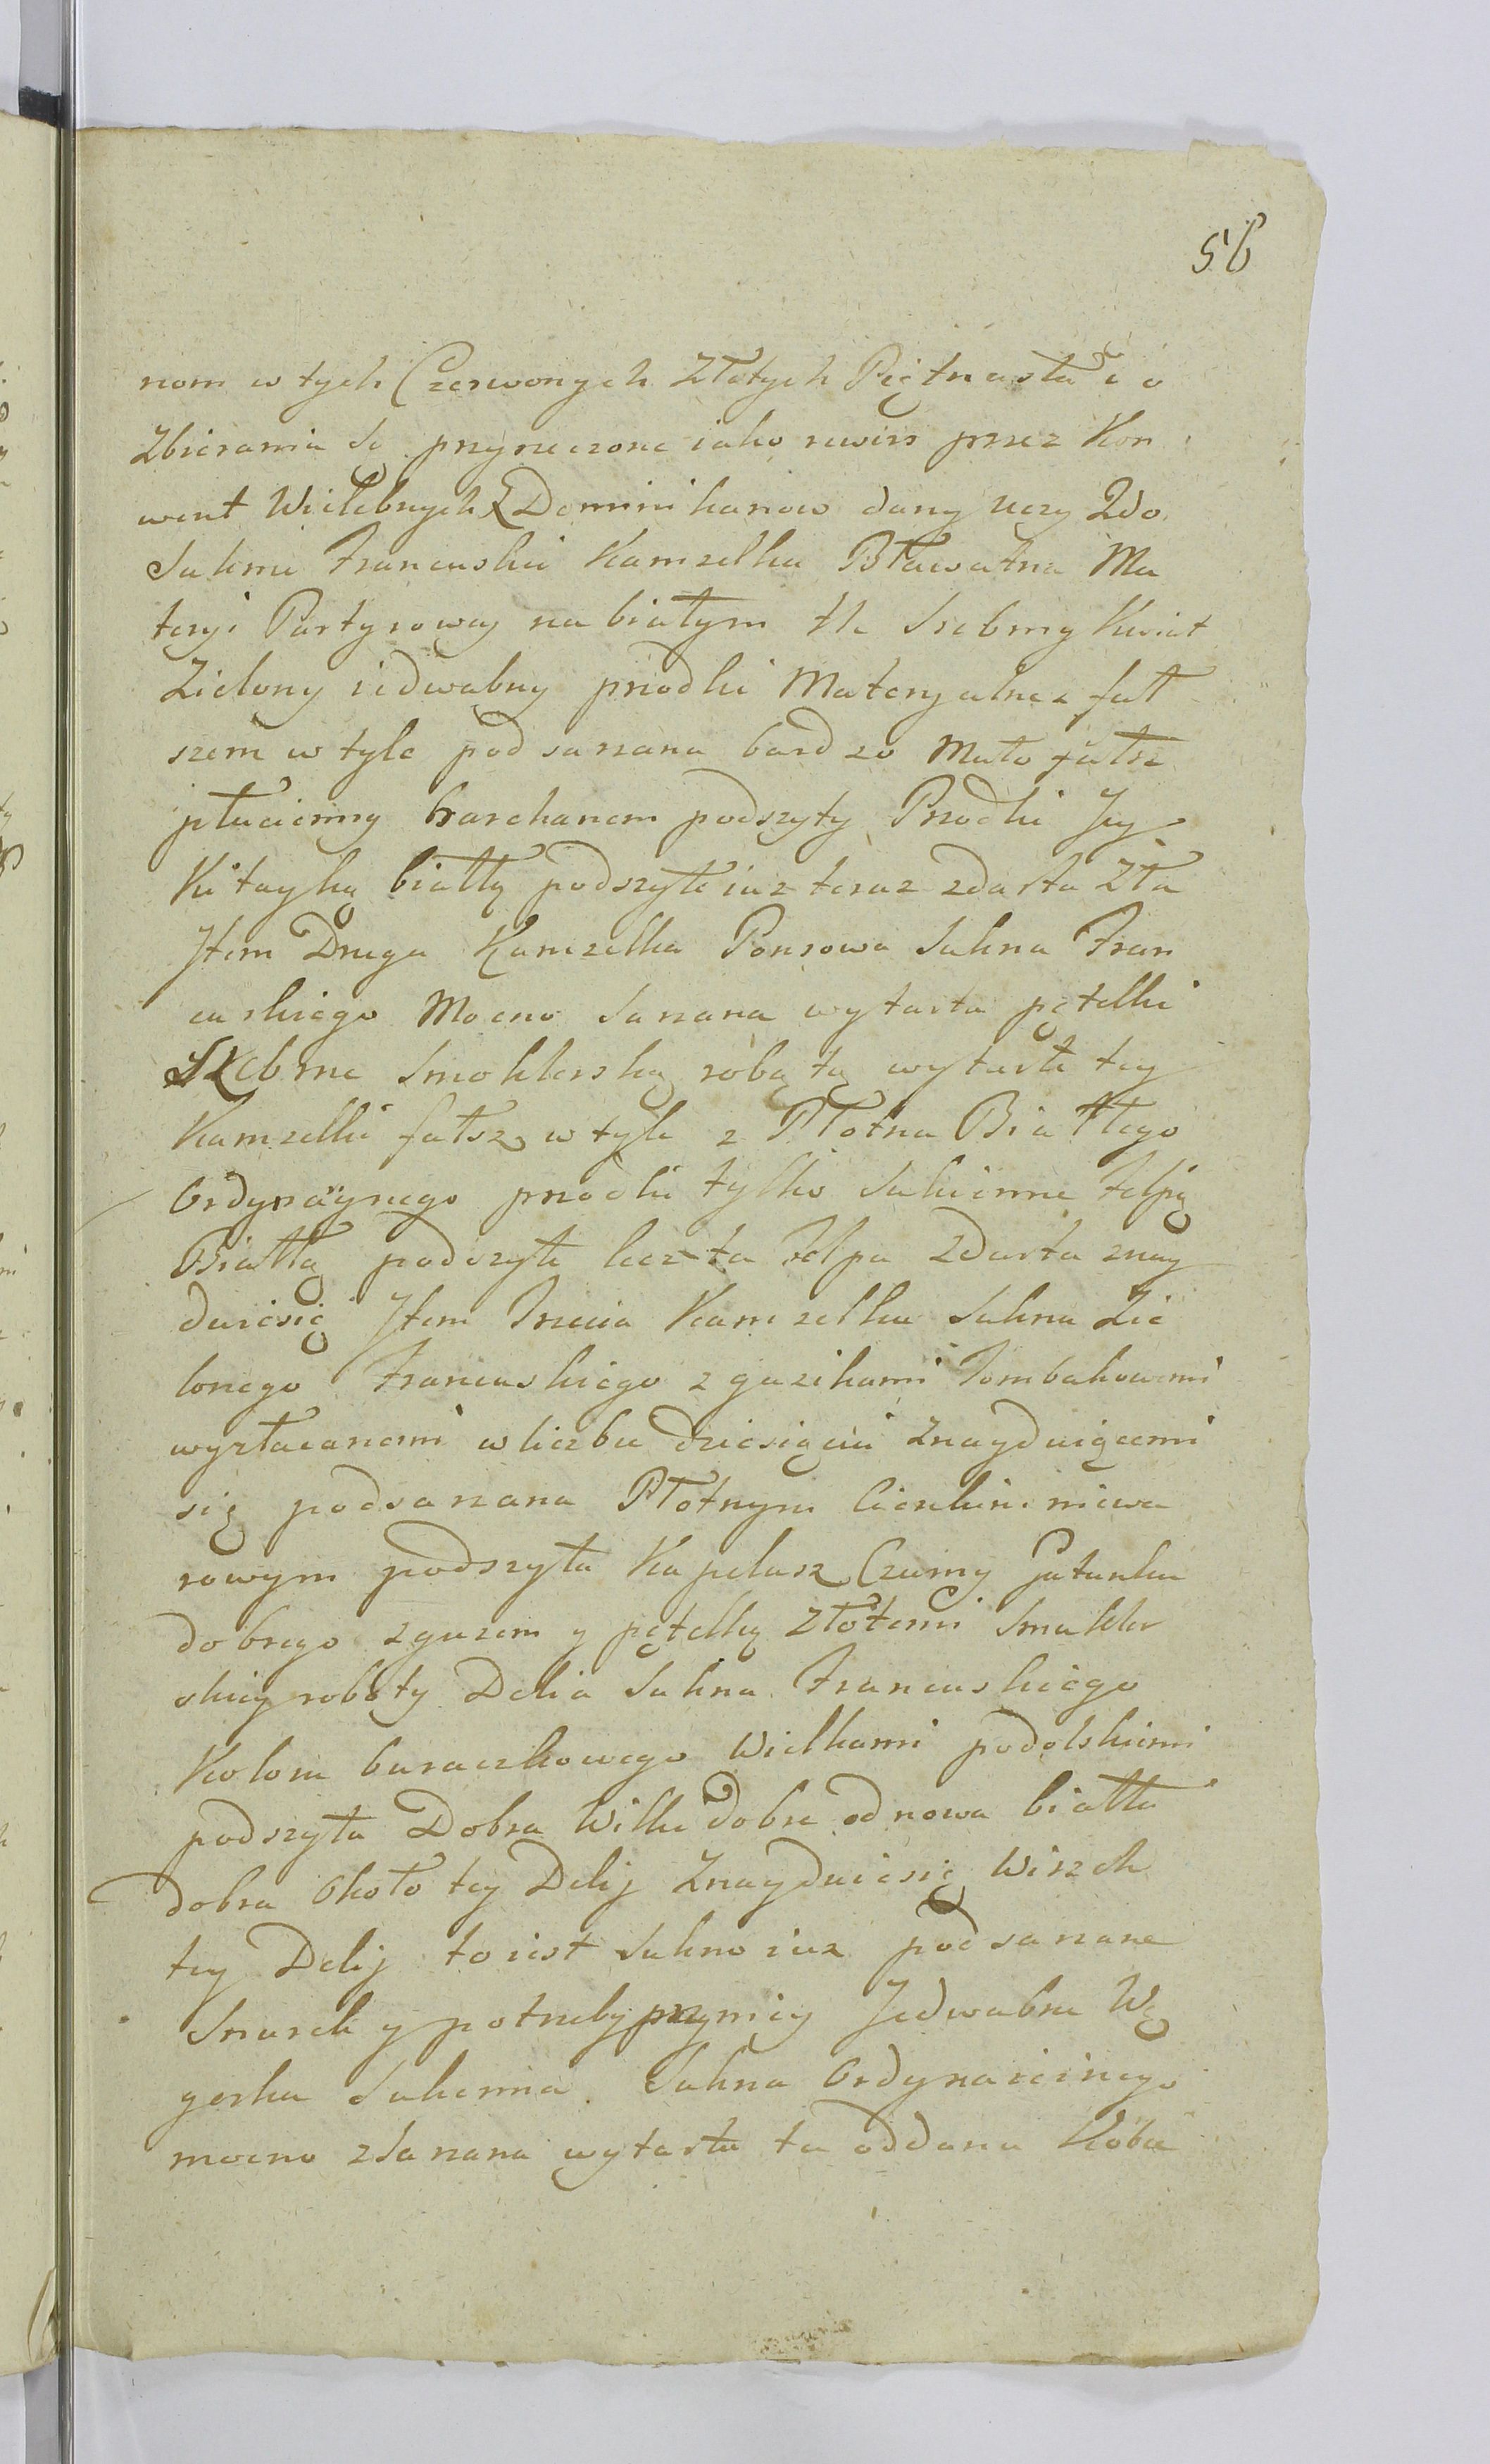 56
nom w tych Czerwonych Złotych Piętnastu i o
Zbierania są przyrzeczone iako rewirs przez Kon
went Wielebnych Dominikanow dany uczy 2do
Sukmi Francuski Kamzelka Bławatna Ma
teryi Partyrowey na białym tle Srebrny Kwiat
Zielony iedwabny przodki Materyalne z fał
szem w tyle podsarzana bardzo Mało fałsz
płucienny Barchanem podszyty Przodki Jey
Kitayką białłą podszyte iuz teraz zdarta Zła
Jtem Druga Kamzelka Ponsowa Sukna Fran
cuskiego Mocno Sarzana wytarta pętelki
Srebrne Smoklerską robotą wytarte tey
Kamzelki fałsz w tyle z Płotna Białłego
Ordynaÿnego przodki tylko Sukienne Felpą
Białłą podszyte lecz ta Felpa Zdarta znay
duiesię Jtem Trzecia Kamzelka Sukna Zie
lonego Francuskiego z guzikami Tombakowemi
wyzłacanemi w liczbie dziesięciu Znayduiącemi
się podsarzana Płotnym Cienkim niewa
rowym podszyta Kapelusz Czarny Gatunku
dobrego z guzem y pętelką Złotemi Smukler
skiey roboty Delia Sukna Francuskiego
Koloru buraczkowego Wilkami podolskiemi
podszyta Dobra Wilki dobre od nowa białła
dobra Około tey Delij Znayduiesię Wirzch
tey Delij to iest Sukno iuz podsarzane
Snurek y potrzeby przyniey Jedwabne Wę
gerka Sukenna Sukna Ordynaieinego
mocno zSarzana wytarta ta oddana Kobie